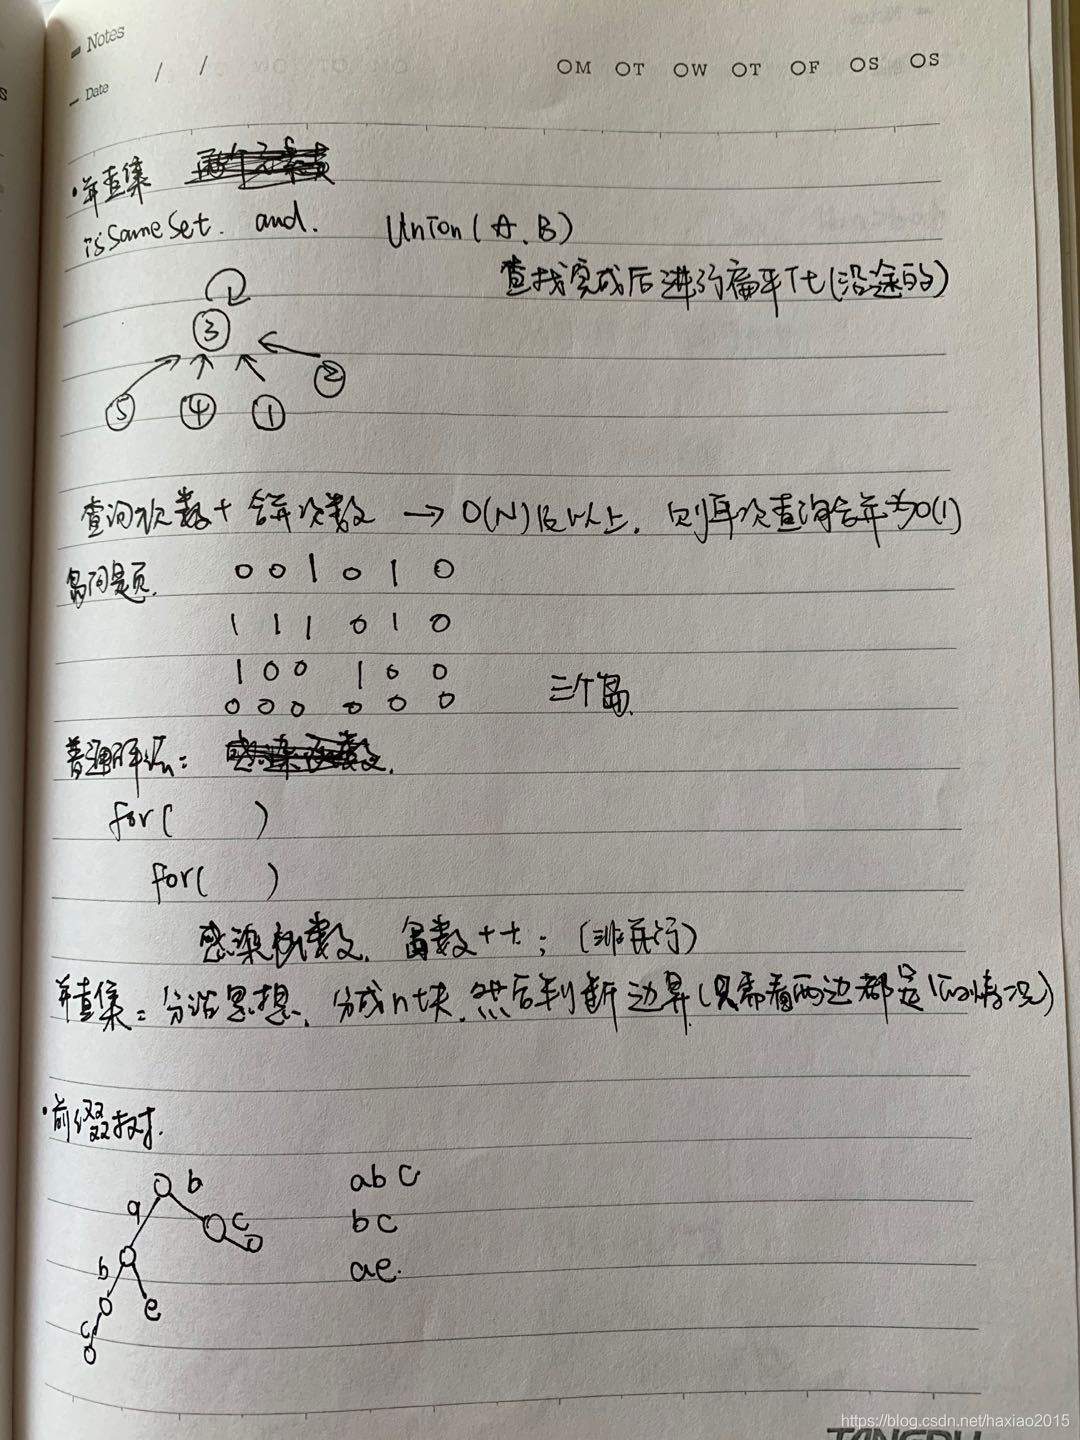 Notes
Date / /
OM OT OW OT OF OS OS
·并查集
isSameSet. and. Union(A,B)
查找完成后进行扁平化(沿途的)
3
5 4 1 2
查询次数+合并次数 → O(N)及以上, 则单次查询合并为O(1)
岛问题.
0 0 1 0 1 0
1 1 1 0 1 0
1 0 0 1 0 0
0 0 0 0 0 0 三个岛.
普通解法:
for( )
for( )
感染函数, 岛数++; (非并行)
并查集: 分治思想, 分成n块, 然后判断边界(只需看两边都是1的情况)
·前缀树.
a b
c
b e
c
abc
bc
ae.
https://blog.csdn.net/haxiao2015